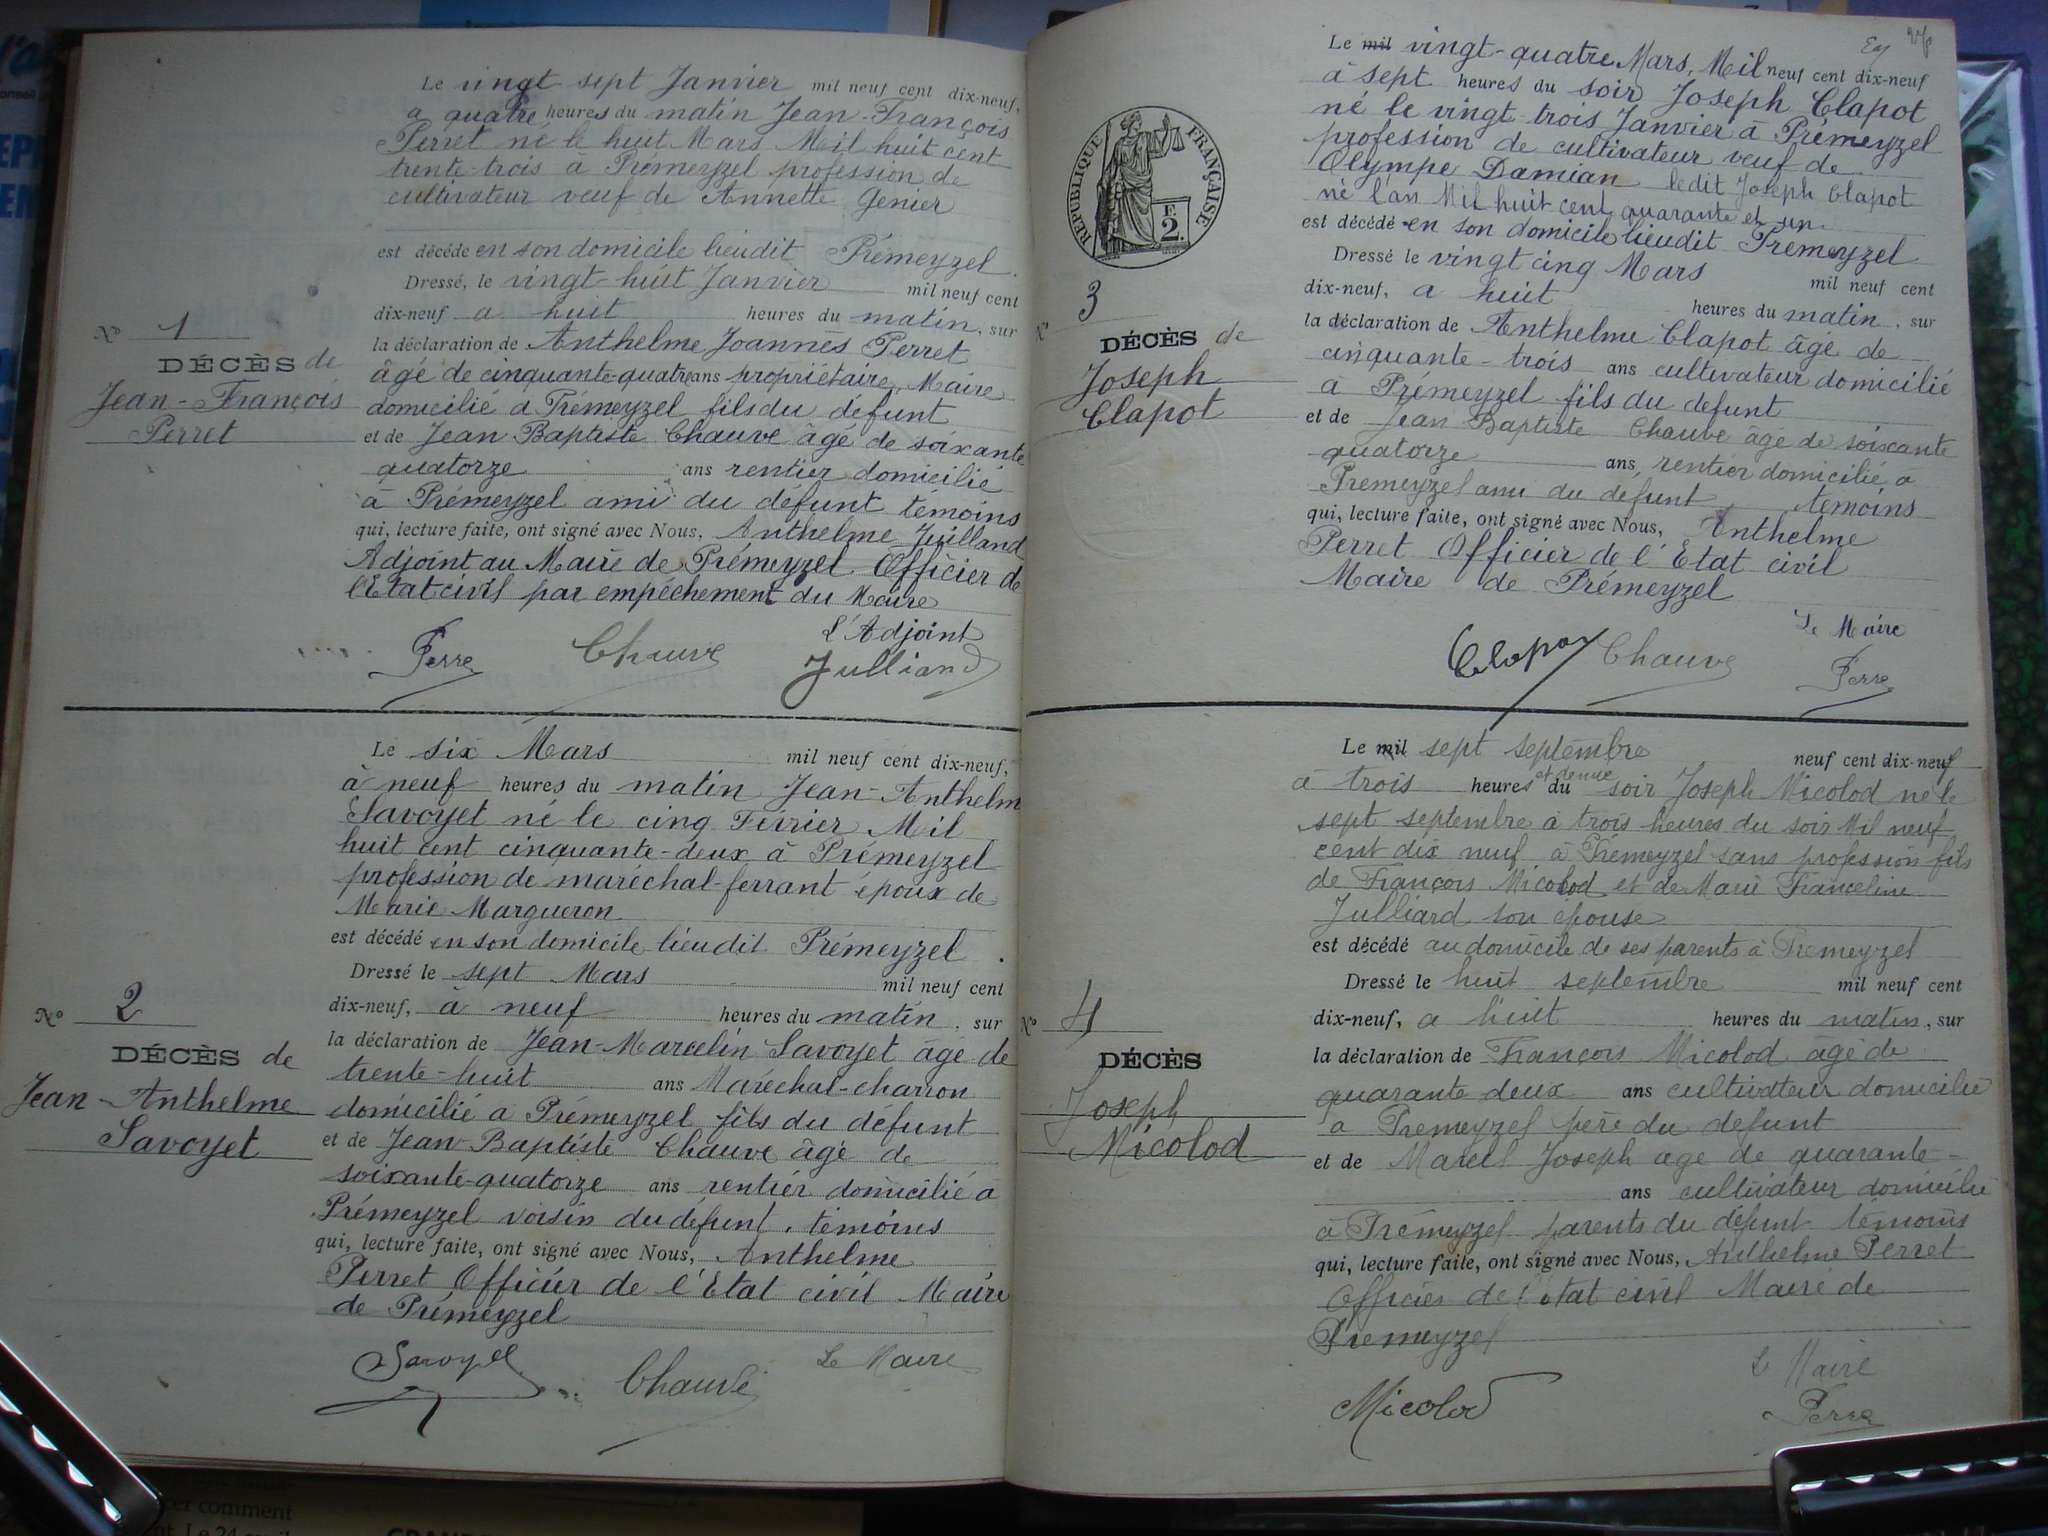 Le vingt-sept Janvier mil neuf cent dix-neuf,
a quatre heures du matin Jean-François
Perret né le huit Mars Mil huit cent
trente-trois à Prémeyzel profession de
cultivateur veuf de Annette Genier
est décédé en son domicile lieudit Prémeyzel.
Dressé, le vingt-huit Janvier mil neuf cent
dix-neuf a huit heures du matin, sur
la déclaration de Anthelme Joannès Perret
âgé de cinquante-quatre ans propriétaire, Maire
domicilié à Prémeyzel fils du défunt
et de Jean Baptiste Chauve âgé de soixante
quatorze ans rentier domicilié
à Prémeyzel ami du défunt témoins
qui, lecture faite, ont signé avec Nous, Anthelme Juilland
Adjoint au Maire de Prémeyzel Officier de
l'Etat civil par empéchement du Maire
L'Adjoint
Perre Chauve Julliand
No 1
DÉCÈS de
Jean-François
Perret
Le six Mars mil neuf cent dix-neuf,
à neuf heures du matin Jean-Anthelm
Savoyet né le cinq Fevrier Mil
huit cent cinquante-deux à Prémeyzel
profession de maréchal-ferrant époux de
Marie Margueron
est décédé en son domicile lieudit Prémeyzel.
Dressé le sept Mars mil neuf cent
dix-neuf, à neuf heures du matin, sur
la déclaration de Jean-Marcelin Savoyet âgé de
trente-huit ans Maréchal-charron
domicilié a Prémeyzel fils du défunt
et de Jean-Baptiste Chauve âgé de
soixante-quatorze ans rentier domicilié à
Prémeyzel voisin du défunt, témoins
qui, lecture faite, ont signé avec Nous, Anthelme
Perret Officier de l'Etat civil Maire
de Prémeyzel
Le Maire
Savoyet Chauve
No 2
DÉCÈS de
Jean-Anthelme
Savoyet
Le mil vingt-quatre Mars, Mil neuf cent dix-neuf
à sept heures du soir Joseph Clapot
né le vingt-trois Janvier à Prémeyzel
profession de cultivateur veuf de
Olympe Damian ledit Joseph Clapot
né l'an Mil huit cent quarante et un
est décédé en son domicile lieudit Prémeyzel
Dressé le vingt cinq Mars mil neuf cent
dix-neuf, a huit heures du matin, sur
la déclaration de Anthelme Clapot âgé de
cinquante-trois ans cultivateur domicilié
à Prémeyzel fils du defunt
et de Jean Baptiste Chauve âgé de soixante
quatorze ans, rentier domicilié à
Premeyzel ami du defunt temoins
qui, lecture faite, ont signé avec Nous, Anthelme
Perret Officier de l'Etat civil
Maire de Prémeyzel
Le Maire
Clapot Chauve Perre
RÉPUBLIQUE FRANÇAISE
E
2
No 3
DÉCÈS de
Joseph
Clapot
Le mil sept septembre neuf cent dix-neuf
à trois heures et demie du soir Joseph Micolod né le
sept septembre à trois heures du soir Mil neuf
cent dix neuf à Prémeyzel sans profession fils
de François Micolod et de Marie Franceline
Julliard son épouse
est décédé au domicile de ses parents à Premeyzel
Dressé le huit septembre mil neuf cent
dix-neuf, a huit heures du matin, sur
la déclaration de François Micolod âgé de
quarante deux ans cultivateur domicilié
a Premeyzel père du defunt
et de Marcel Joseph age de quarante-
ans cultivateur domicilié
à Prémeyzel parents du défunt témoins
qui, lecture faite, ont signé avec Nous, Anthelme Perret
Officier de l'état civil Maire de
Premeyzel
Le Maire
Micolod Perre
No 4
DÉCÈS
Joseph
Micolod
cer comment